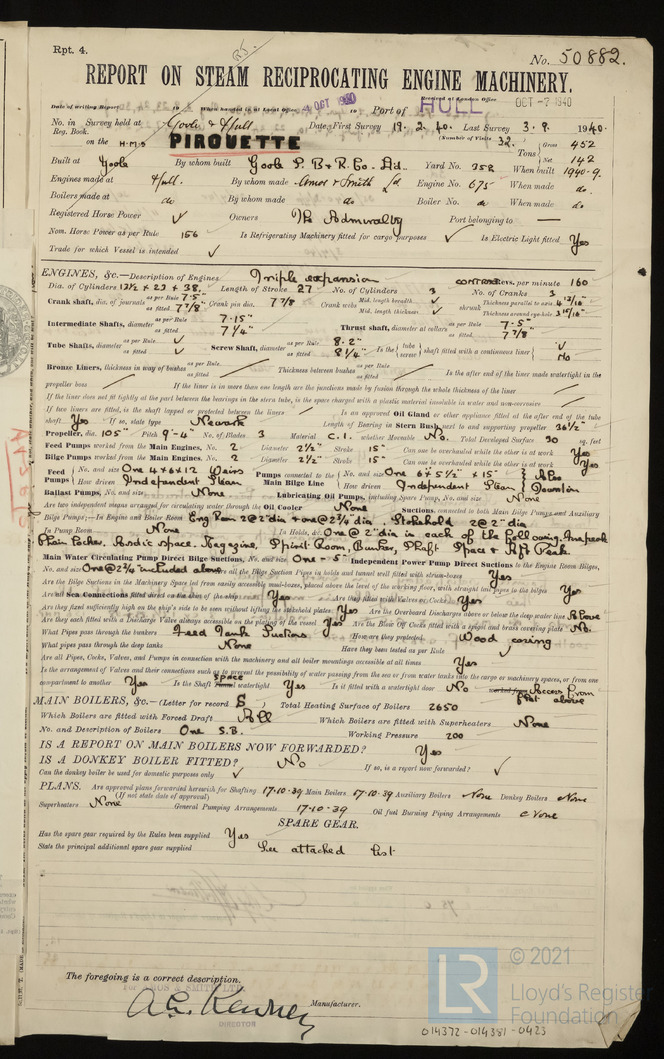 Rpt. 4.
No. 50882.
REPORT ON STEAM RECIPROCATING ENGINE MACHINERY.
Date of writing Report 19 When handed in at Local Office OCT 1940 19 Port of HULL Received at London Office OCT -7 1940
No. in Survey held at Goole & Hull Date, First Survey 19.2.40. Last Survey 3.9. 1940.
Reg. Book. (Number of Visits 32.
on the H.M.S PIROUETTE Tons Gross 452
Net 142
Built at Goole By whom built Goole S.B & R. Co. Ld. Yard No. 358 When built 1940-9.
Engines made at Hull. By whom made Amos & Smith Ld Engine No. 675 When made do.
Boilers made at do By whom made do Boiler No. do When made do
Registered Horse Power ✓ Owners The Admiralty Port belonging to —
Nom. Horse Power as per Rule 156 Is Refrigerating Machinery fitted for cargo purposes ✓ Is Electric Light fitted Yes
Trade for which Vessel is intended ✓
ENGINES, &c.—Description of Engines Triple expansion Revs. per minute 160
Dia. of Cylinders 13½ x 23 x 38. Length of Stroke 27 No. of Cylinders 3 No. of Cranks 3
Crank shaft, dia. of journals as per Rule 7.5" as fitted 7⅞" Crank pin dia. 7⅞ Crank webs Mid. length breadth ✓ Mid. length thickness ✓ shrunk Thickness parallel to axis 4 12/16" Thickness around eye-hole 3 15/16"
Intermediate Shafts, diameter as per Rule 7.15" as fitted 7¼" Thrust shaft, diameter at collars as per Rule 7.5" as fitted 7⅞
Tube Shafts, diameter as per Rule ✓ as fitted ✓ Screw Shaft, diameter as per Rule 8.2" as fitted 8¼" Is the tube screw shaft fitted with a continuous liner ✓ No
Bronze Liners, thickness in way of bushes as per Rule as fitted Thickness between bushes as per Rule as fitted Is the after end of the liner made watertight in the
propeller boss If the liner is in more than one length are the junctions made by fusion through the whole thickness of the liner
If the liner does not fit tightly at the part between the bearings in the stern tube, is the space charged with a plastic material insoluble in water and non-corrosive
If two liners are fitted, is the shaft lapped or protected between the liners Is an approved Oil Gland or other appliance fitted at the after end of the tube
shaft Yes If so, state type Newark Length of Bearing in Stern Bush next to and supporting propeller 36½"
Propeller, dia. 105" Pitch 9'-4" No. of Blades 3 Material C.I. whether Moveable No. Total Developed Surface 30 sq. feet
Feed Pumps worked from the Main Engines, No. 2 Diameter 2½" Stroke 15" Can one be overhauled while the other is at work Yes
Bilge Pumps worked from the Main Engines, No. 2 Diameter 2½" Stroke 15" Can one be overhauled while the other is at work Yes
Feed Pumps No. and size One 4x6x12 Weirs How driven Independent Steam Pumps connected to the Main Bilge Line No. and size One 6 x 5½ x 15" How driven Independent Steam
Ballast Pumps, No. and size None Lubricating Oil Pumps, including Spare Pump, No. and size None
Are two independent means arranged for circulating water through the Oil Cooler None Suctions, connected to both Main Bilge Pumps and Auxiliary
Bilge Pumps;—In Engine and Boiler Room Eng Room 2@2" dia + one@2¾" dia. Stokehold 2@2" dia
In Pump Room None In Holds, &c. One @ 2" dia in each of the following. Forepeak
Chain Locker. Asdic space. Magazine. Spirit Room, Bunker, Shaft Space & Aft Peak.
Main Water Circulating Pump Direct Bilge Suctions, No. and size One - 5" Independent Power Pump Direct Suctions to the Engine Room Bilges,
No. and size One@2¾ included above Are all the Bilge Suction Pipes in holds and tunnel well fitted with strum-boxes Yes
Are the Bilge Suctions in the Machinery Space led from easily accessible mud-boxes, placed above the level of the working floor, with straight tail pipes to the bilges Yes
Are all Sea Connections fitted direct on the skin of the ship Yes Are they fitted with Valves or Cocks Yes
Are they fixed sufficiently high on the ship's side to be seen without lifting the stokehold plates Yes Are the Overboard Discharges above or below the deep water line Above
Are they each fitted with a Discharge Valve always accessible on the plating of the vessel Yes Are the Blow Off Cocks fitted with a spigot and brass covering plate No.
What Pipes pass through the bunkers Feed Tank Suctions How are they protected Wood casing
What pipes pass through the deep tanks None Have they been tested as per Rule ✓
Are all Pipes, Cocks, Valves, and Pumps in connection with the machinery and all boiler mountings accessible at all times Yes
Is the arrangement of Valves and their connections such as to prevent the possibility of water passing from the sea or from water tanks into the cargo or machinery spaces, or from one
compartment to another Yes Is the Shaft space watertight Yes Is it fitted with a watertight door No Access from flat above
MAIN BOILERS, &c.—(Letter for record S) Total Heating Surface of Boilers 2650
Which Boilers are fitted with Forced Draft All Which Boilers are fitted with Superheaters None
No. and Description of Boilers One S.B. Working Pressure 200
IS A REPORT ON MAIN BOILERS NOW FORWARDED? Yes
IS A DONKEY BOILER FITTED? No If so, is a report now forwarded? ✓
Can the donkey boiler be used for domestic purposes only ✓
PLANS. Are approved plans forwarded herewith for Shafting 17.10.39 Main Boilers 17.10.39 Auxiliary Boilers None Donkey Boilers None
(If not state date of approval)
Superheaters None General Pumping Arrangements 17.10.39 Oil fuel Burning Piping Arrangements None
SPARE GEAR.
Has the spare gear required by the Rules been supplied Yes
State the principal additional spare gear supplied See attached list
The foregoing is a correct description.
FOR AMOS & SMITH LTD.
Manufacturer.
DIRECTOR
LR
© 2021
Lloyd's Register
Foundation
014372-014381-0423